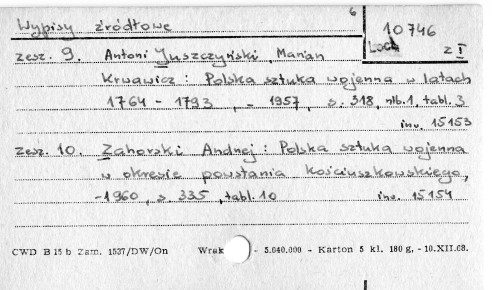 Wypisy źródłowe
6
10746
z I
zesz. 9. Antoni Juszczyński, Marian
Krwawicz : Polska sztuka wojenna w latach
1764 - 1793, - 1957, s. 318, nlb. 1, tabl. 3
inw. 15153
zesz. 10. Zahorski Andrzej : Polska sztuka wojenna
w okresie powstania Kościuszkowskiego,
-1960, s. 335, tabl. 10 inw. 15154
CWD B 15 b Zam. 1537/DW/On - 5.040.000 - Karton 5 kl. 180 g. - 10.XII.68.